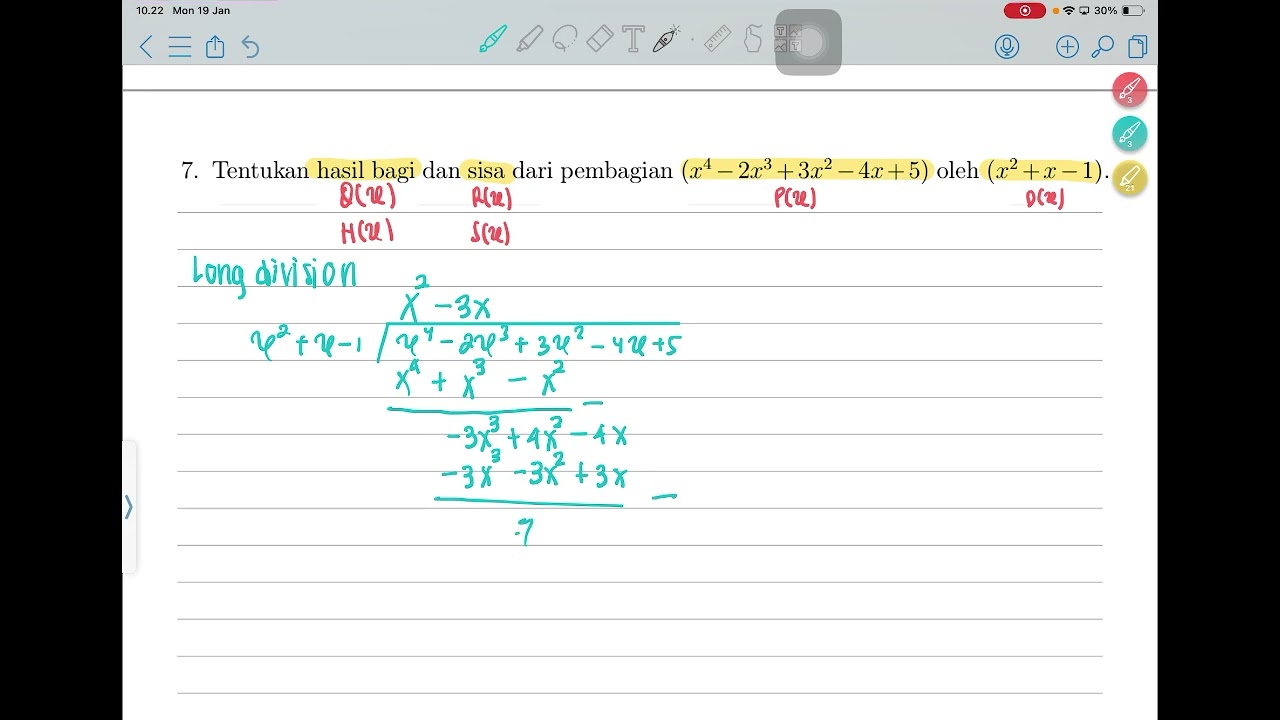 10.22 Mon 19 Jan 30%
T
3
3
21
7. Tentukan hasil bagi dan sisa dari pembagian (x⁴ − 2x³ + 3x² − 4x + 5) oleh (x² + x − 1).
Q(x) R(x) P(x) D(x)
H(x) S(x)
Long division
x² − 3x
x² + x − 1 x⁴ − 2x³ + 3x² − 4x + 5
x⁴ + x³ − x²
−
−3x³ + 4x² − 4x
−3x³ − 3x² + 3x
−
7